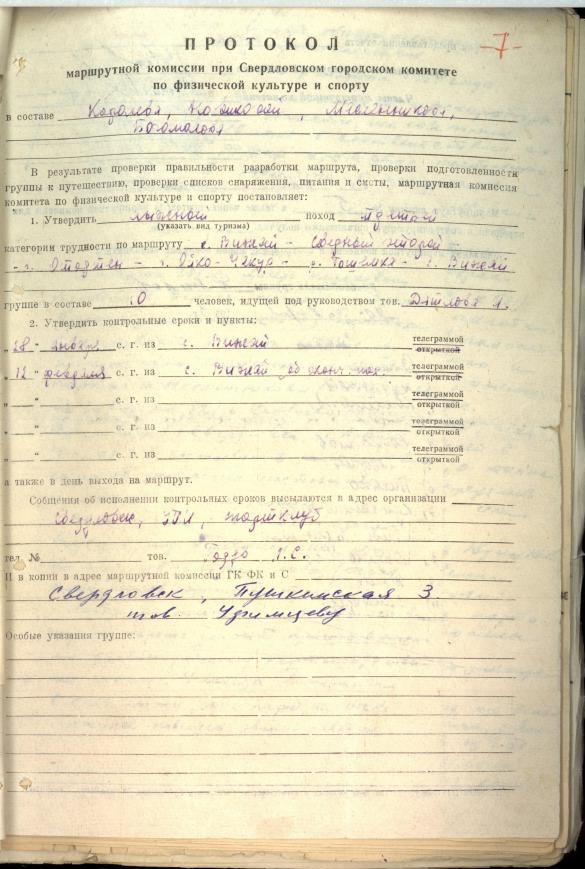 -7-
ПРОТОКОЛ
маршрутной комиссии при Свердловском городском комитете
по физической культуре и спорту
в составе Королева, Новикова,
Богомолова
В результате проверки правильности разработки маршрута, проверки подготовленности
группы к путешествию, проверки списков снаряжения, питания и сметы, маршрутная комиссия
комитета по физической культуре и спорту постановляет:
1. Утвердить лыжный поход третьей
(указать вид туризма)
категории трудности по маршруту с. Вижай -
- г. Отортен - г. Ойко-Чакур - р. Тошемка - с. Вижай
группе в составе 10 человек, идущей под руководством тов. Дятлова И.
2. Утвердить контрольные сроки и пункты:
„28" января с. г. из с. Вижай телеграммой
открыткой
„12" февраля с. г. из с. Вижай об оконч. телеграммой
открыткой
„ " с. г. из телеграммой
открыткой
„ " с. г. из телеграммой
открыткой
„ " с. г. из телеграммой
открыткой
а также в день выхода на маршрут.
Собщения об исполнении контрольных сроков высылаются в адрес организации
Свердловск, УПИ, спортклуб
тел. № тов. Гордо Л.С.
И в копии в адрес маршрутной комиссии ГК ФК и С
Свердловск, Пушкинская 3.
тов. Уфимцеву
Особые указания группе: